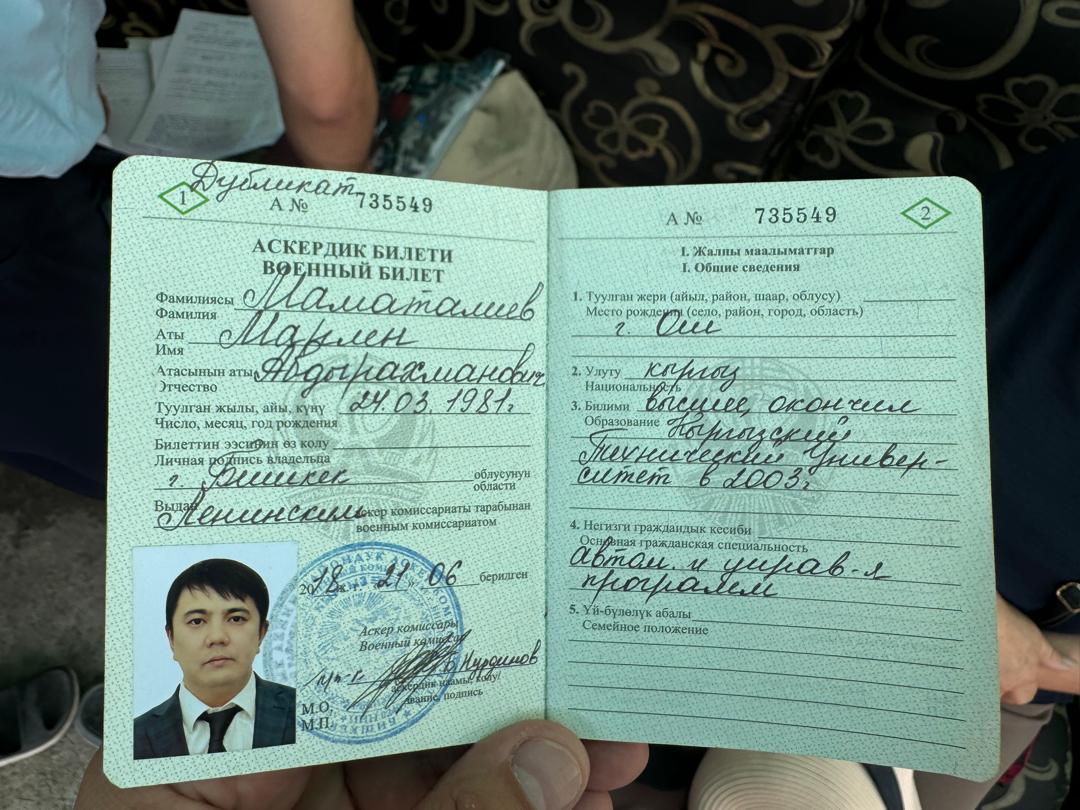 1
Дубликат
А № 735549
АСКЕРДИК БИЛЕТИ
ВОЕННЫЙ БИЛЕТ
Фамилиясы
Фамилия
Маматалиев
Аты
Имя
Марлен
Атасынын аты
Этчество
Абдырахманович
Туулган жылы, айы, күнү
Число, месяц, год рождения
24.03.1981г
Билеттин ээсинин өз колу
Личная подпись владельца
г. Бишкек
облусунун
области
Выдан
Ленинским
аскер комиссариаты тарабынан
военным комиссариатом
2018 ж. г. 21 06 берилген
Аскер комиссары
Военный комиссар
Нурдинов
М.О.
М.П.
2
А № 735549
I. Жалпы маалыматтар
I. Общие сведения
1. Туулган жери (айыл, район, шаар, облусу)
Место рождения (село, район, город, область)
г. Ош
2. Улуту
Национальность
кыргыз
3. Билими
Образование
высшее, окончил
Кыргызский
Технический Универ-
ситет в 2003г
4. Негизги граждандык кесиби
Основная гражданская специальность
автом. и управ-я
программ
5. Үй-бүлөлүк абалы
Семейное положение